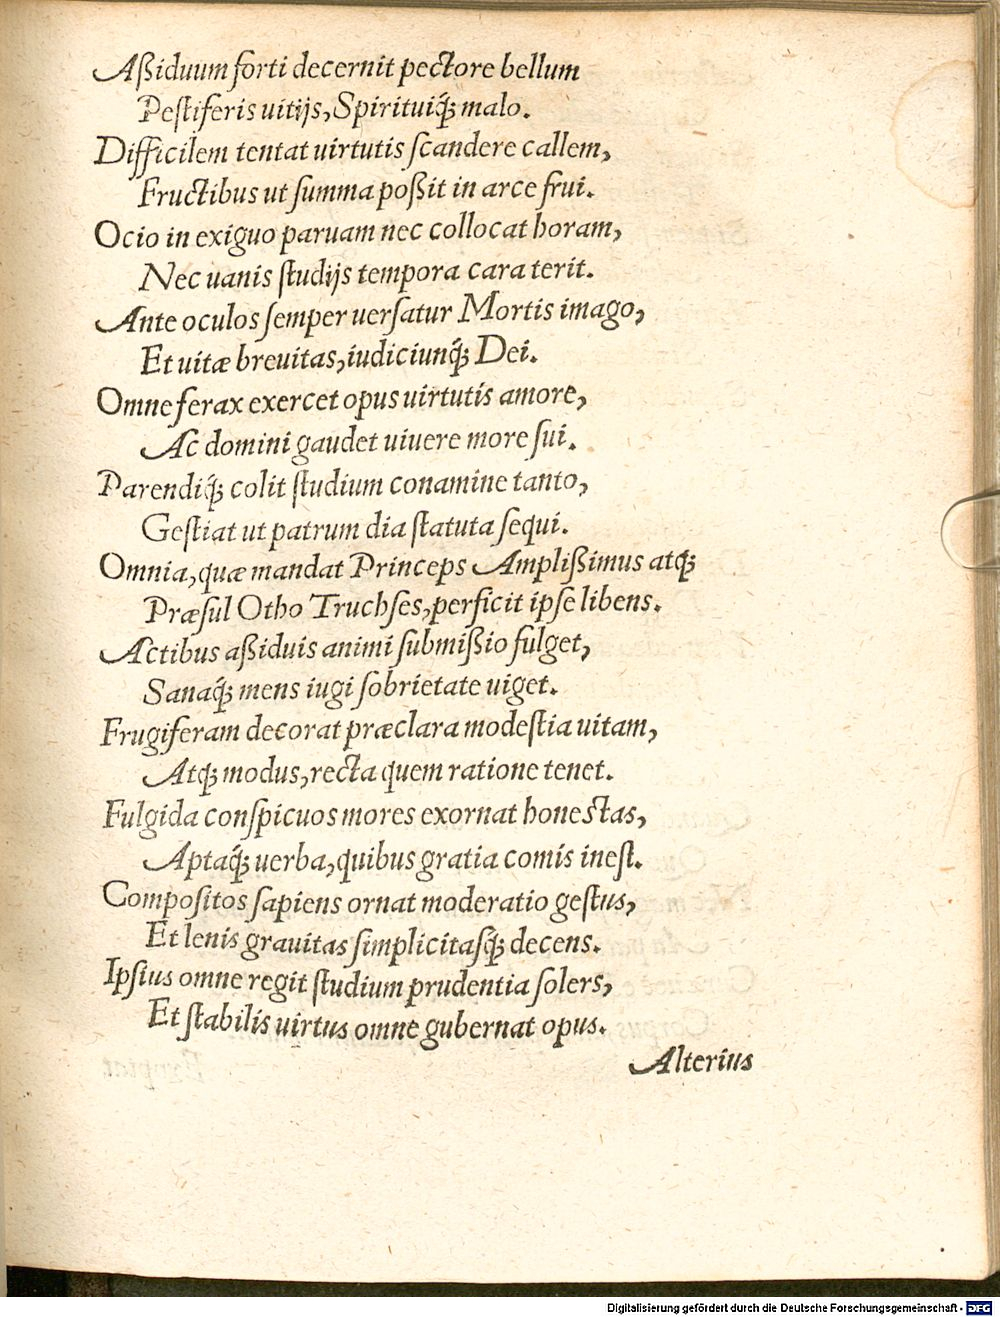 Aßiduum forti decernit pectore bellum
Pestiferis uitijs, Spirituiq́ꝫ malo.
Difficilem tentat uirtutis scandere callem,
Fructibus ut summa poßit in arce frui.
Ocio in exiguo paruam nec collocat horam,
Nec uanis studijs tempora cara terit.
Ante oculos semper uersatur Mortis imago,
Et uitæ breuitas, iudiciunq́ꝫ Dei.
Omne ferax exercet opus uirtutis amore,
Ac domini gaudet uiuere more sui.
Parendiq́ꝫ colit studium conamine tanto,
Gestiat ut patrum dia statuta sequi.
Omnia, quæ mandat Princeps Amplißimus atq́ꝫ
Præsul Otho Truchses, perficit ipse libens.
Actibus aßiduis animi submißio fulget,
Sanaq́ꝫ mens iugi sobrietate uiget.
Frugiferam decorat præclara modestia uitam,
Atq́ꝫ modus, recta quem ratione tenet.
Fulgida conspicuos mores exornat honestas,
Aptaq́ꝫ uerba, quibus gratia comis inest.
Compositos sapiens ornat moderatio gestus,
Et lenis grauitas simplicitasq́ꝫ decens.
Ipsius omne regit studium prudentia solers,
Et stabilis uirtus omne gubernat opus.
Alterius
Digitalisierung gefördert durch die Deutsche Forschungsgemeinschaft - DFG